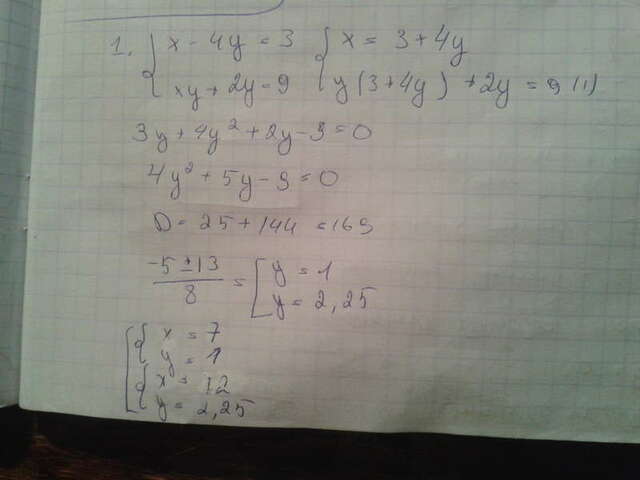 1. { x - 4y = 3 { x = 3 + 4y
xy + 2y = 9 y(3 + 4y) + 2y = 9 (1)
3y + 4y² + 2y - 9 = 0
4y² + 5y - 9 = 0
D = 25 + 144 = 169
-5 ± 13
8
= [ y = 1
y = 2,25
[ { x = 7
y = 1
{ x = 12
y = 2,25